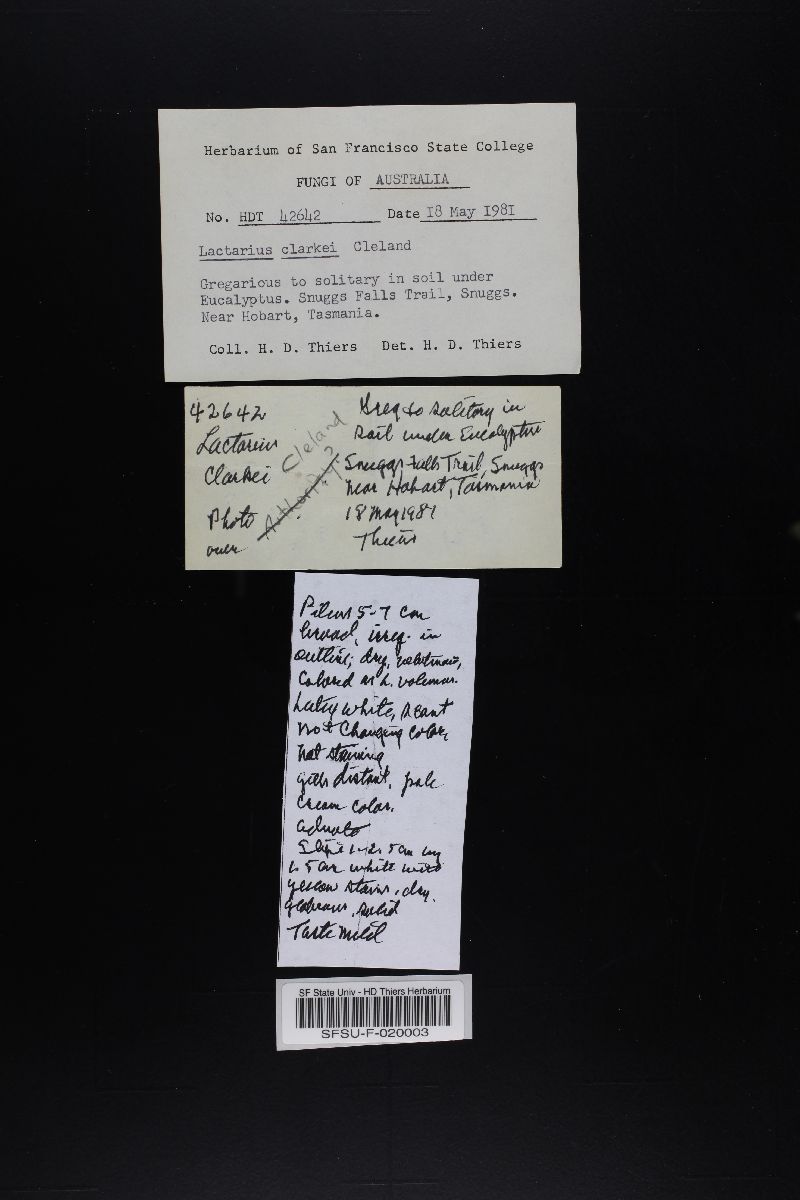 Herbarium of San Francisco State College
FUNGI OF AUSTRALIA
No. HDT 42642 Date 18 May 1981
Lactarius clarkei Cleland
Gregarious to solitary in soil under
Eucalyptus. Snuggs Falls Trail, Snuggs.
Near Hobart, Tasmania.
Coll. H. D. Thiers Det. H. D. Thiers
42642
Lactarius
Clarkei Cleland
Authority?
Photo
over
Greg to solitary in
soil under Eucalyptus
Snuggs Falls Trail, Snuggs
near Hobart, Tasmania
18 May 1981
Thiers
Pileus 5-7 cm
broad, irreg. in
outline; dry, velutinous,
Colored as L. volemus.
Latex white, scant
not changing color,
not staining
gills distant, pale
cream color.
adnate
Stipe 1-2.5 cm by
1.5 cm white with
yellow stains, dry.
glabrous, solid
Taste mild
SF State Univ - HD Thiers Herbarium
SFSU-F-020003